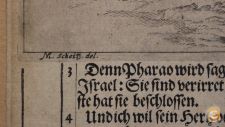 M. Scheits del.
3 Denn Pharao wird sag
Israel: Sie sind verirret
ste hat sie beschlossen.
4 Und ich wil sein Her